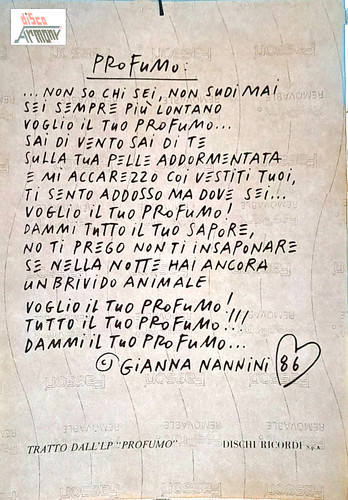 disco
Armony
PROFUMO:
... NON SO CHI SEI, NON SUDI MAI
SEI SEMPRE PIÙ LONTANO
VOGLIO IL TUO PROFUMO...
SAI DI VENTO SAI DI TE
SULLA TUA PELLE ADDORMENTATA
E MI ACCAREZZO COI VESTITI TUOI,
TI SENTO ADDOSSO MA DOVE SEI...
VOGLIO IL TUO PROFUMO!
DAMMI TUTTO IL TUO SAPORE,
NO TI PREGO NON TI INSAPONARE
SE NELLA NOTTE HAI ANCORA
UN BRIVIDO ANIMALE
VOGLIO IL TUO PROFUMO!
TUTTO IL TUO PROFUMO!!!
DAMMI IL TUO PROFUMO...
© GIANNA NANNINI 86
TRATTO DALL'LP "PROFUMO" DISCHI RICORDI S.p.A.